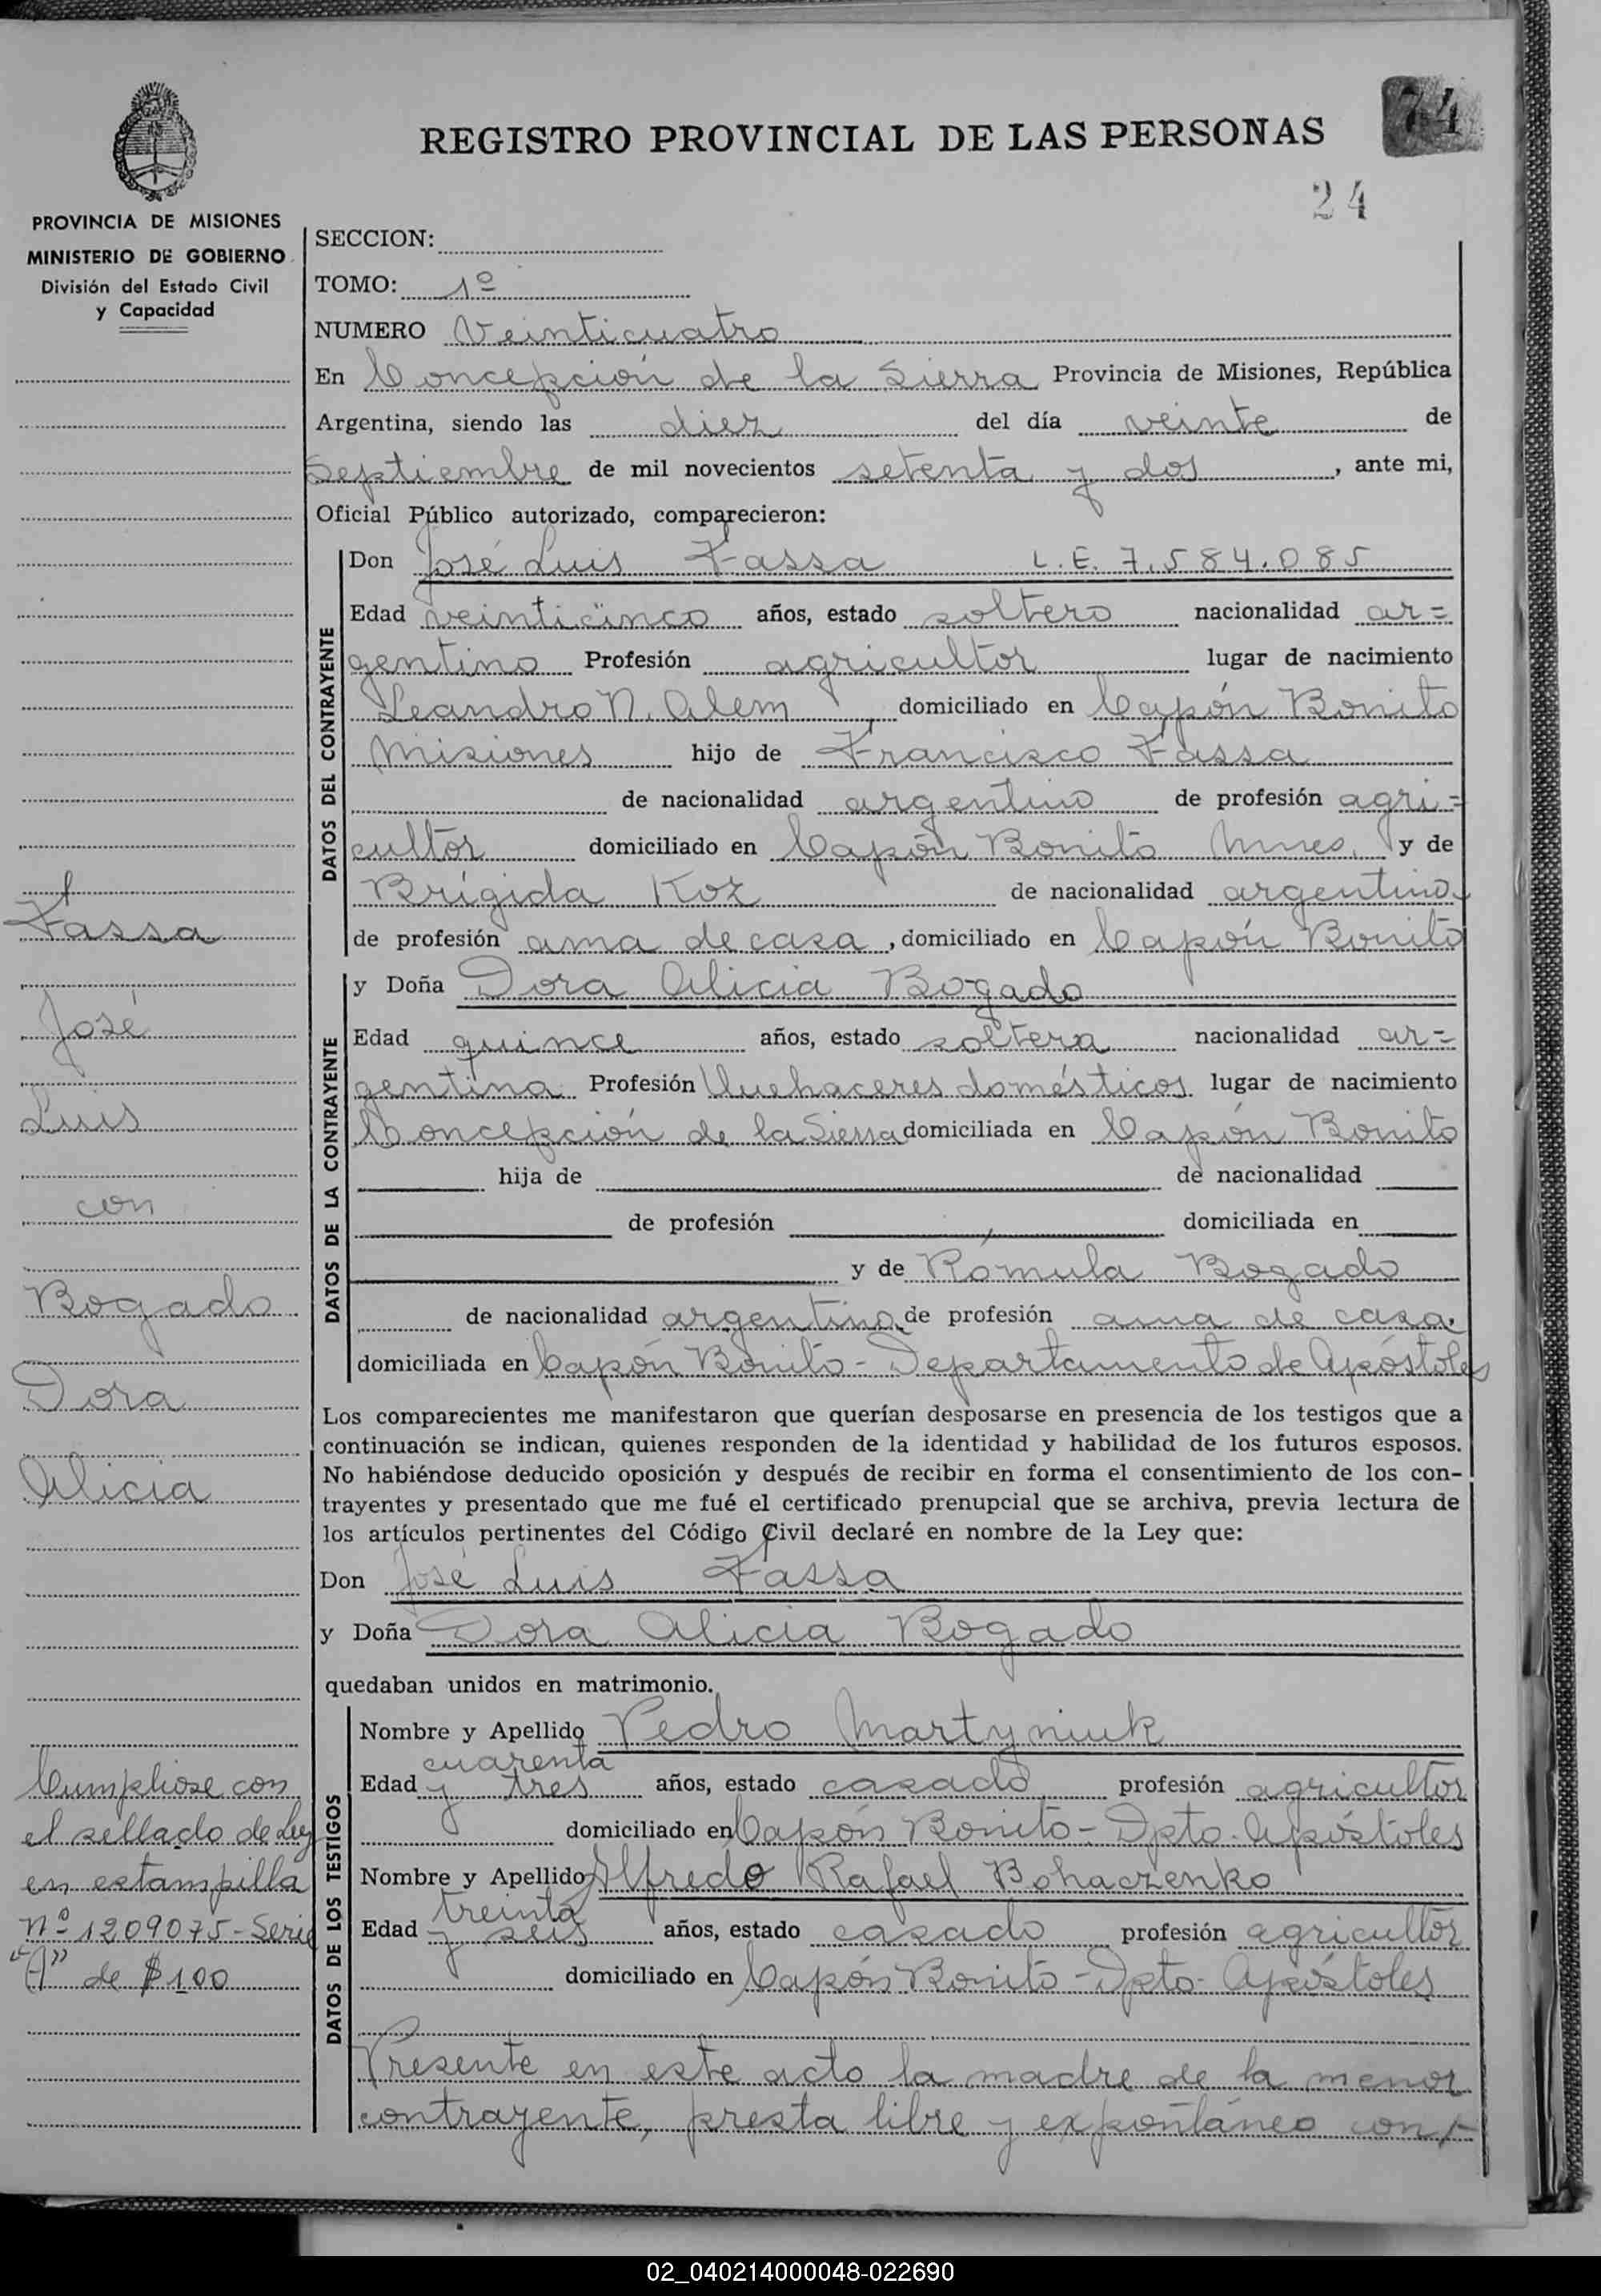 74
REGISTRO PROVINCIAL DE LAS PERSONAS
24
PROVINCIA DE MISIONES
MINISTERIO DE GOBIERNO
División del Estado Civil
y Capacidad
SECCION:
TOMO: 1º
NUMERO Veinticuatro
En Concepción de la Sierra Provincia de Misiones, República
Argentina, siendo las diez del día veinte de
Septiembre de mil novecientos setenta y dos, ante mi,
Oficial Público autorizado, comparecieron:
DATOS DEL CONTRAYENTE
Don José Luis Fassa L.E. 7.584.085
Edad veinticinco años, estado soltero nacionalidad ar=
gentino Profesión agricultor lugar de nacimiento
Leandro N. Alem, domiciliado en Capón Bonito
Misiones hijo de Francisco Fassa
de nacionalidad argentino de profesión agri=
cultor domiciliado en Capón Bonito Mnes. y de
Brígida Koz de nacionalidad argentina
de profesión ama de casa, domiciliado en Capón Bonito
DATOS DE LA CONTRAYENTE
y Doña Dora Alicia Bogado
Edad quince años, estado soltera nacionalidad ar=
gentina Profesión Quehaceres domésticos lugar de nacimiento
Concepción de la Sierra domiciliada en Capón Bonito
hija de de nacionalidad
de profesión domiciliada en
y de Rómula Bogado
de nacionalidad argentina de profesión ama de casa,
domiciliada en Capón Bonito - Departamento de Apóstoles
Los comparecientes me manifestaron que querían desposarse en presencia de los testigos que a
continuación se indican, quienes responden de la identidad y habilidad de los futuros esposos.
No habiéndose deducido oposición y después de recibir en forma el consentimiento de los con-
trayentes y presentado que me fué el certificado prenupcial que se archiva, previa lectura de
los artículos pertinentes del Código Civil declaré en nombre de la Ley que:
Don José Luis Fassa
y Doña Dora Alicia Bogado
quedaban unidos en matrimonio.
DATOS DE LOS TESTIGOS
Nombre y Apellido Pedro Martyniuk
cuarenta
Edad y tres años, estado casado profesión agricultor
domiciliado en Capón Bonito - Dpto. Apóstoles
Nombre y Apellido Alfredo Rafael Bohaczenko
treinta
Edad y seis años, estado casado profesión agricultor
domiciliado en Capón Bonito - Dpto. Apóstoles
Presente en este acto la madre de la menor
contrayente, presta libre y expontáneo con/-
Fassa
José
Luis
con
Bogado
Dora
Alicia
Cumpliose con
el sellado de Ley
en estampilla
Nº 1209075 - Serie
"A" de $ 1,00
02_040214000048-022690